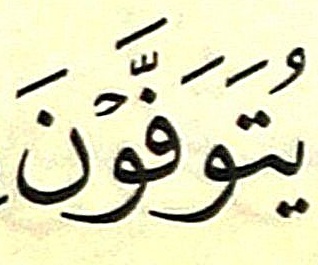 يُتَوَفَّوْنَ